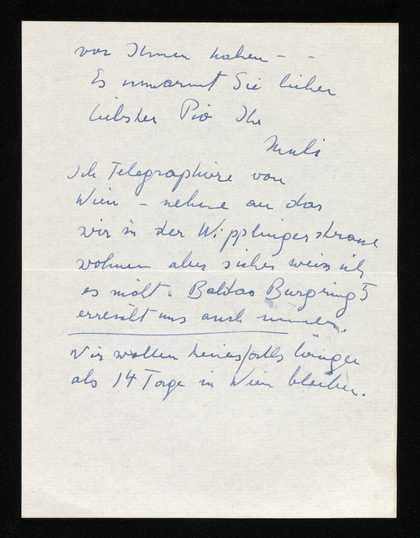 vor Ihnen haben - -
Es umarmt Sie lieber
liebster Pio Ihr
Muli
Ich Telegraphire von
Wien – nehme an das
wir in der Wipplingerstrasse
wohnen aber sicher weiss ich
es nicht. Baldas Burgring 5
erreicht uns auch immer.
Wir wollen keinesfalls länger
als 14 Tage in Wien bleiben.